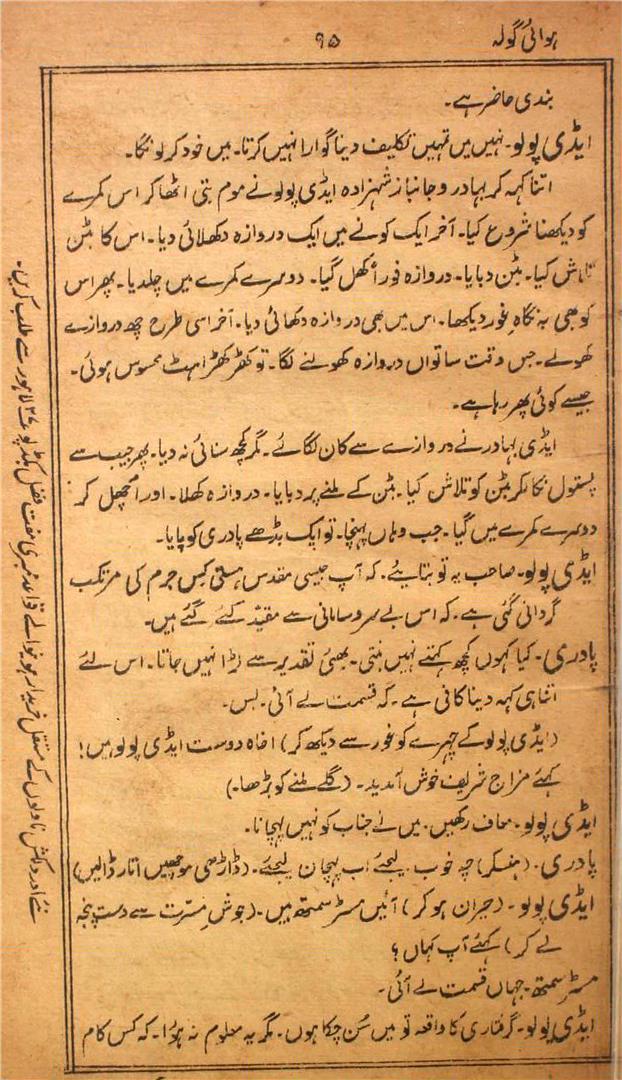 ہوائی گولہ ۹۵
بندی حاضر ہے۔
ایڈی پولو۔ نہیں میں تمہیں تکلیف دینا گوارا نہیں کرتا۔ میں خود کر لونگا۔
اتنا کہہ کر بہادر و جانباز شہزادہ ایڈی پولو نے موم بتی اٹھا کر اس کمرے
کو دیکھنا شروع کیا۔ آخر ایک کونے میں ایک دروازہ دکھلائی دیا۔ اس کا بٹن
تلاش کیا۔ بٹن دبایا۔ دروازہ فوراً کھل گیا۔ دوسرے کمرے میں چلدیا۔ پھر اس
کو بھی بہ نگاہِ غور دیکھا۔ اس میں بھی دروازہ دکھائی دیا۔ آخر اسی طرح چھ دروازے
کھولے۔ جس وقت ساتواں دروازہ کھولنے لگا۔ تو کھڑکھڑاہٹ محسوس ہوئی۔
جیسے کوئی پھر رہا ہے۔
ایڈی بہادر نے دروازے سے کان لگائے۔ مگر کچھ سنائی نہ دیا۔ پھر جیب سے
پستول نکالکر بٹن کو تلاش کیا۔ بٹن کے ملنے پر دبایا۔ دروازہ کھلا۔ اور اُچھل کر
دوسرے کمرے میں گیا۔ جب وہاں پہنچا۔ تو ایک بڈھے پادری کو پایا۔
ایڈی پولو۔ صاحب یہ تو بتایئے۔ کہ آپ جیسی مقدس ہستی کس جرم کی مرتکب
گردانی گئی ہے۔ کہ اس بے سروسامانی سے مقیّد کئے گئے ہیں۔
پادری۔ کیا کہوں کچھ کہتے نہیں بنتی۔ بھئی تقدیر سے لڑا نہیں جاتا۔ اس لئے
اتنا ہی کہہ دینا کافی ہے۔ کہ قسمت لے آئی۔ بس۔
(ایڈی پولو کے چہرے کو غور سے دیکھ کر) اخاہ دوست ایڈی پولو ہیں!
کہئے مزاج شریف خوش آمدید۔ (گلے ملنے کو بڑھا۔)
ایڈی پولو۔ معاف رکھیں۔ میں نے جناب کو نہیں پہچانا۔
پادری۔ (ہنسکر) چہ خوب۔ لیجئے اب پہچان لیجئے۔ (ڈاڑھی موچھیں اتار ڈالیں)
ایڈی پولو۔ (حیران ہو کر) آئیں مسٹر سمتھ ہیں۔ (جوشِ مسّرت سے دست پنجہ
لے کر) کہئے آپ کہاں؟
مسٹر سمتھ۔ جہاں قسمت لے آئی۔
ایڈی پولو۔ گرفتاری کا واقعہ تو میں سُن چکا ہوں۔ مگر یہ معلوم نہ ہوا۔ کہ کس کام
نئے اور دلکش ناولوں کے مستقل خریدار ہو نیوالے قواعد ممبری مفت فضل بکڈپو لاہور سے طلب کریں۔